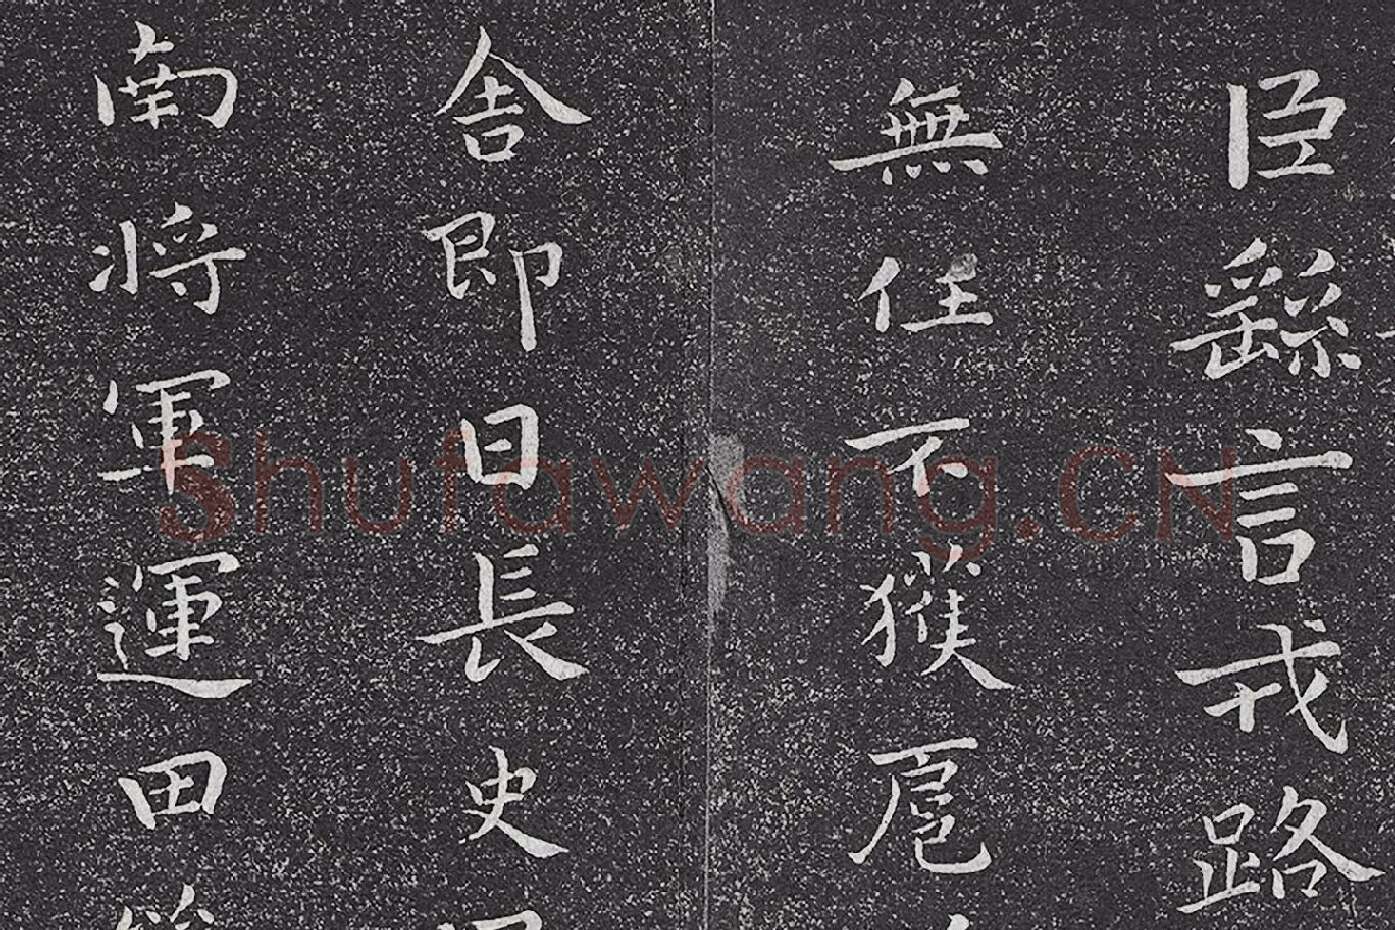 臣繇言戎路
無任不獲扈
舍即日長史
南將軍運田
Shufawang.CN